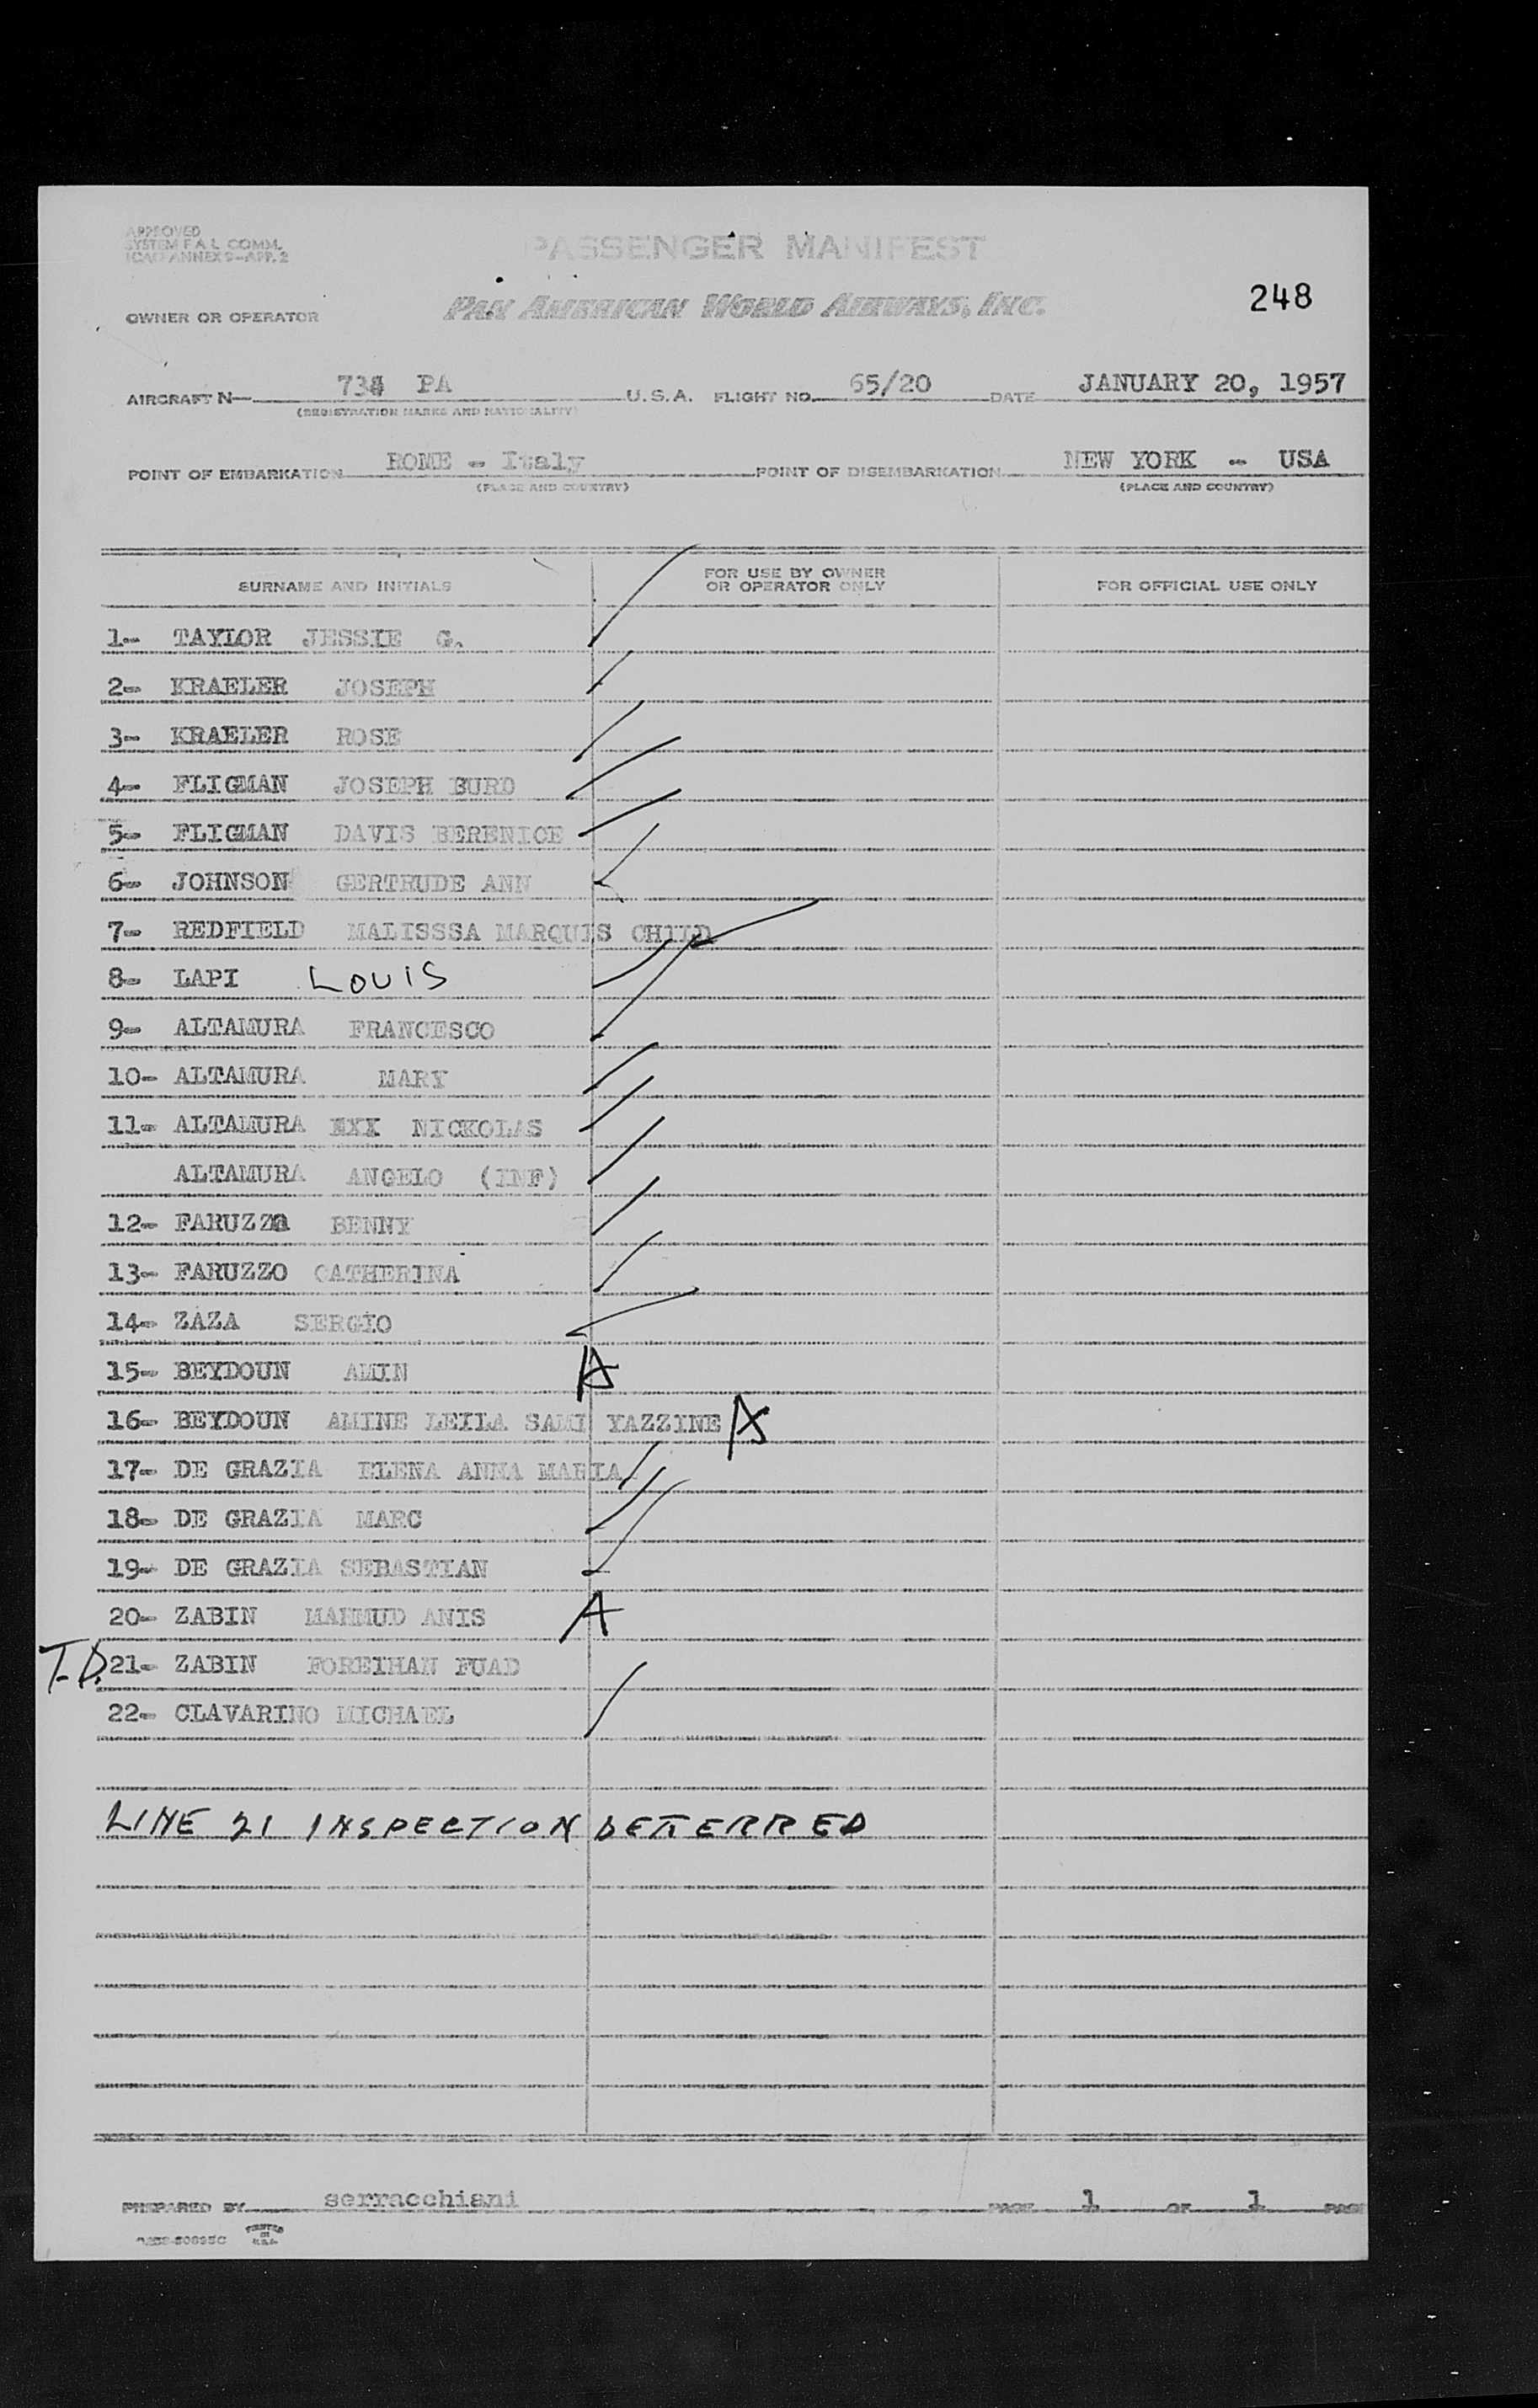 APPROVED
SYSTEM F.A.L. COMM.
ICAO ANNEX 9-APP. 2
PASSENGER MANIFEST
248
OWNER OR OPERATOR PAN AMERICAN WORLD AIRWAYS, INC.
AIRCRAFT N— PA U.S.A. FLIGHT NO. 65/20 DATE JANUARY 20, 1957
(REGISTRATION MARKS AND NATIONALITY)
POINT OF EMBARKATION ROME - Italy POINT OF DISEMBARKATION NEW YORK - USA
(PLACE AND COUNTRY) (PLACE AND COUNTRY)
SURNAME AND INITIALS FOR USE BY OWNER OR OPERATOR ONLY FOR OFFICIAL USE ONLY
1- TAYLOR JESSIE G.
2- KRAELER JOSEPH
3- KRAELER ROSE
4- FLIGMAN JOSEPH BURD
5- FLIGMAN DAVIS BERENICE
6- JOHNSON GERTRUDE ANN
7- REDFIELD MALISSSA MARQUIS CHILD
8- LAPI LOUIS
9- ALTAMURA FRANCESCO
10- ALTAMURA MARY
11- ALTAMURA XXX NICKOLAS
ALTAMURA ANGELO (INF)
12- FARUZZO BENNY
13- FARUZZO CATHERINA
14- ZAZA SERGIO
15- BEYDOUN AMIN A
16- BEYDOUN AMINE LEILA SAMI YAZZINE A
17- DE GRAZIA ELENA ANNA MARIA
18- DE GRAZIA MARC
19- DE GRAZIA SEBASTIAN
20- ZABIN MAHMUD ANIS A
T.D. 21- ZABIN FOREIHAN FUAD
22- CLAVARINO MICHAEL
LINE 21 INSPECTION DEFERRED
PREPARED BY serracchiani PAGE 1 OF 1 PAGE
PRINTED IN U.S.A.